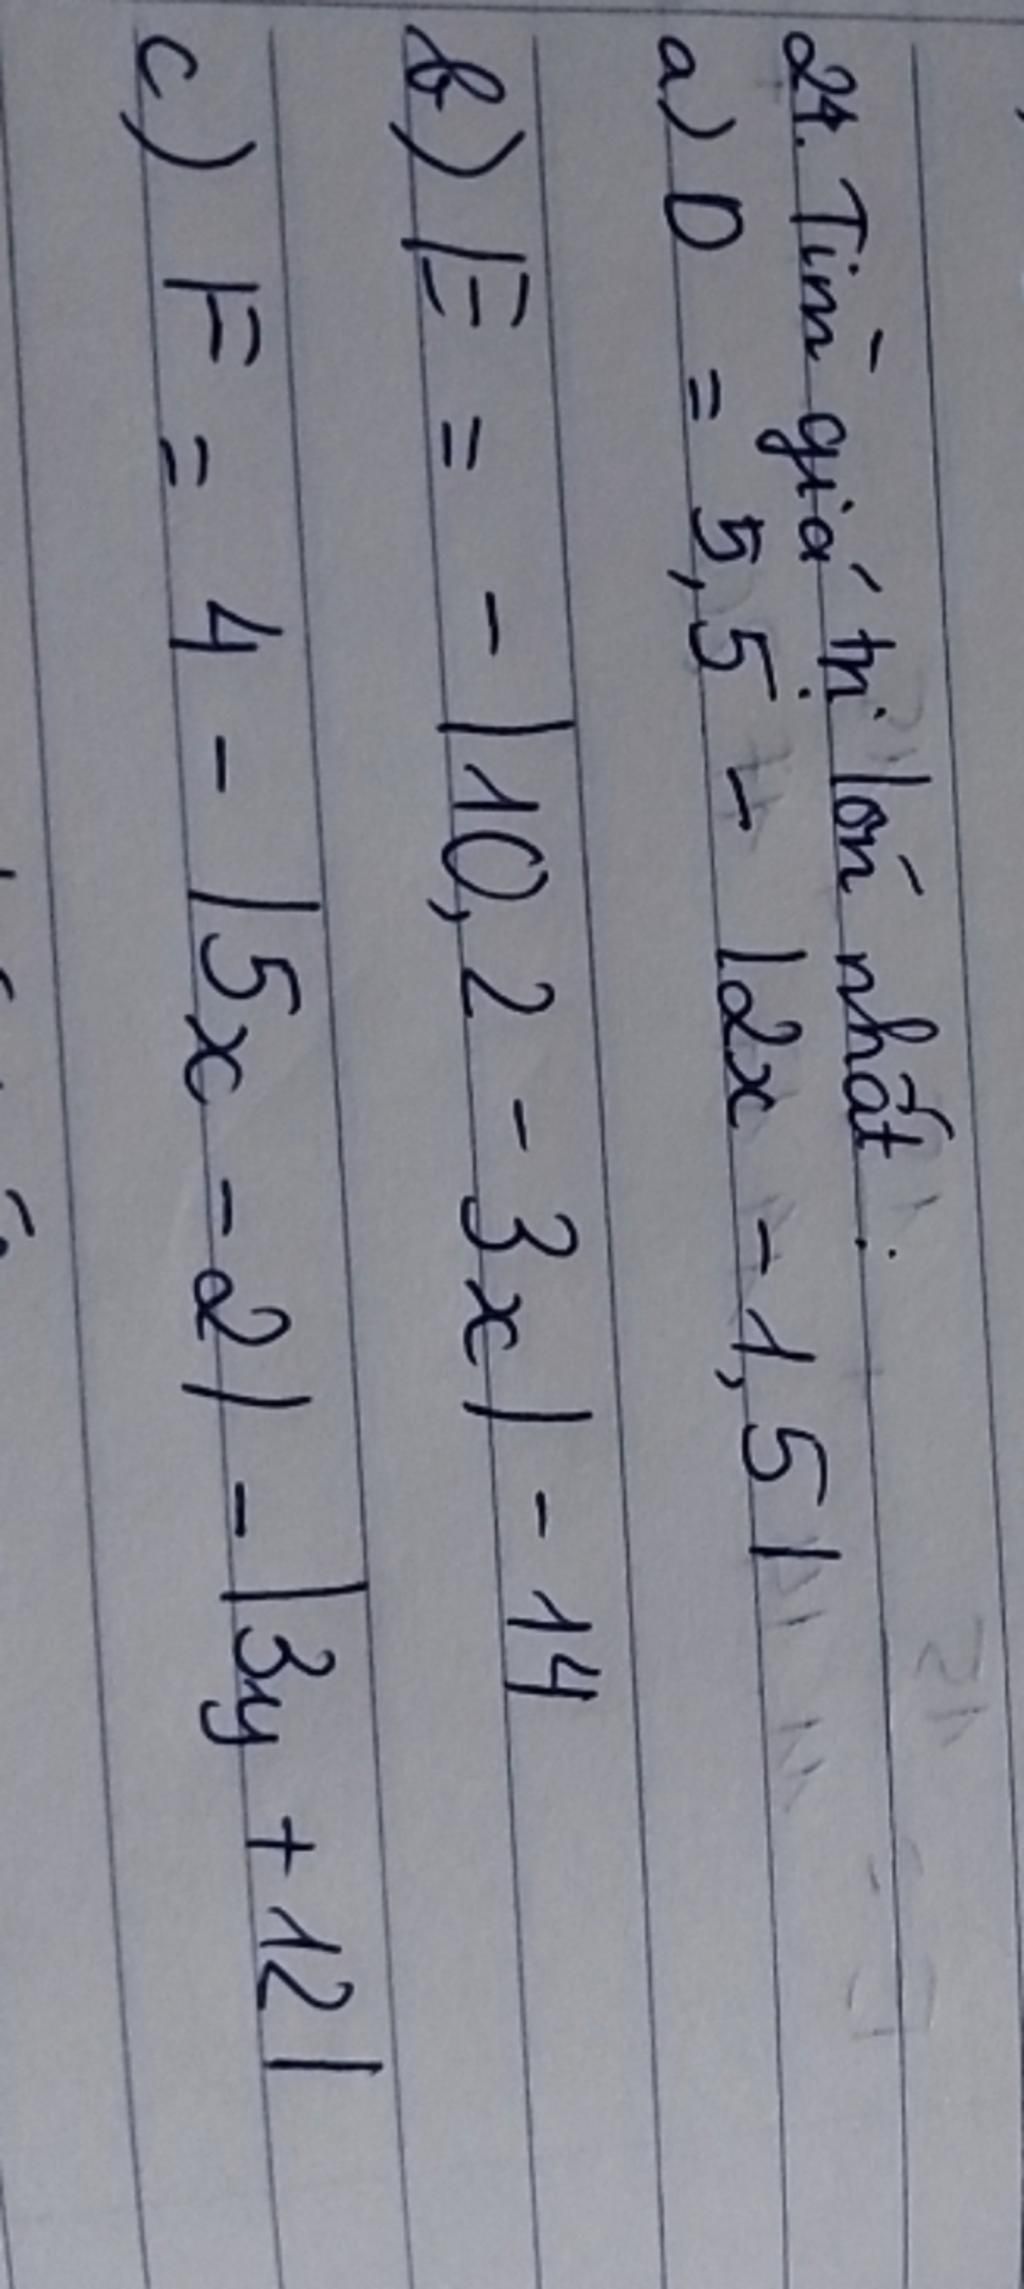 24. Tìm giá trị lớn nhất.
a) D = 5,5 - |2x - 1,5|
b) E = - |10,2 - 3x| - 14
c) F = 4 - |5x - 2| - |3y + 12|